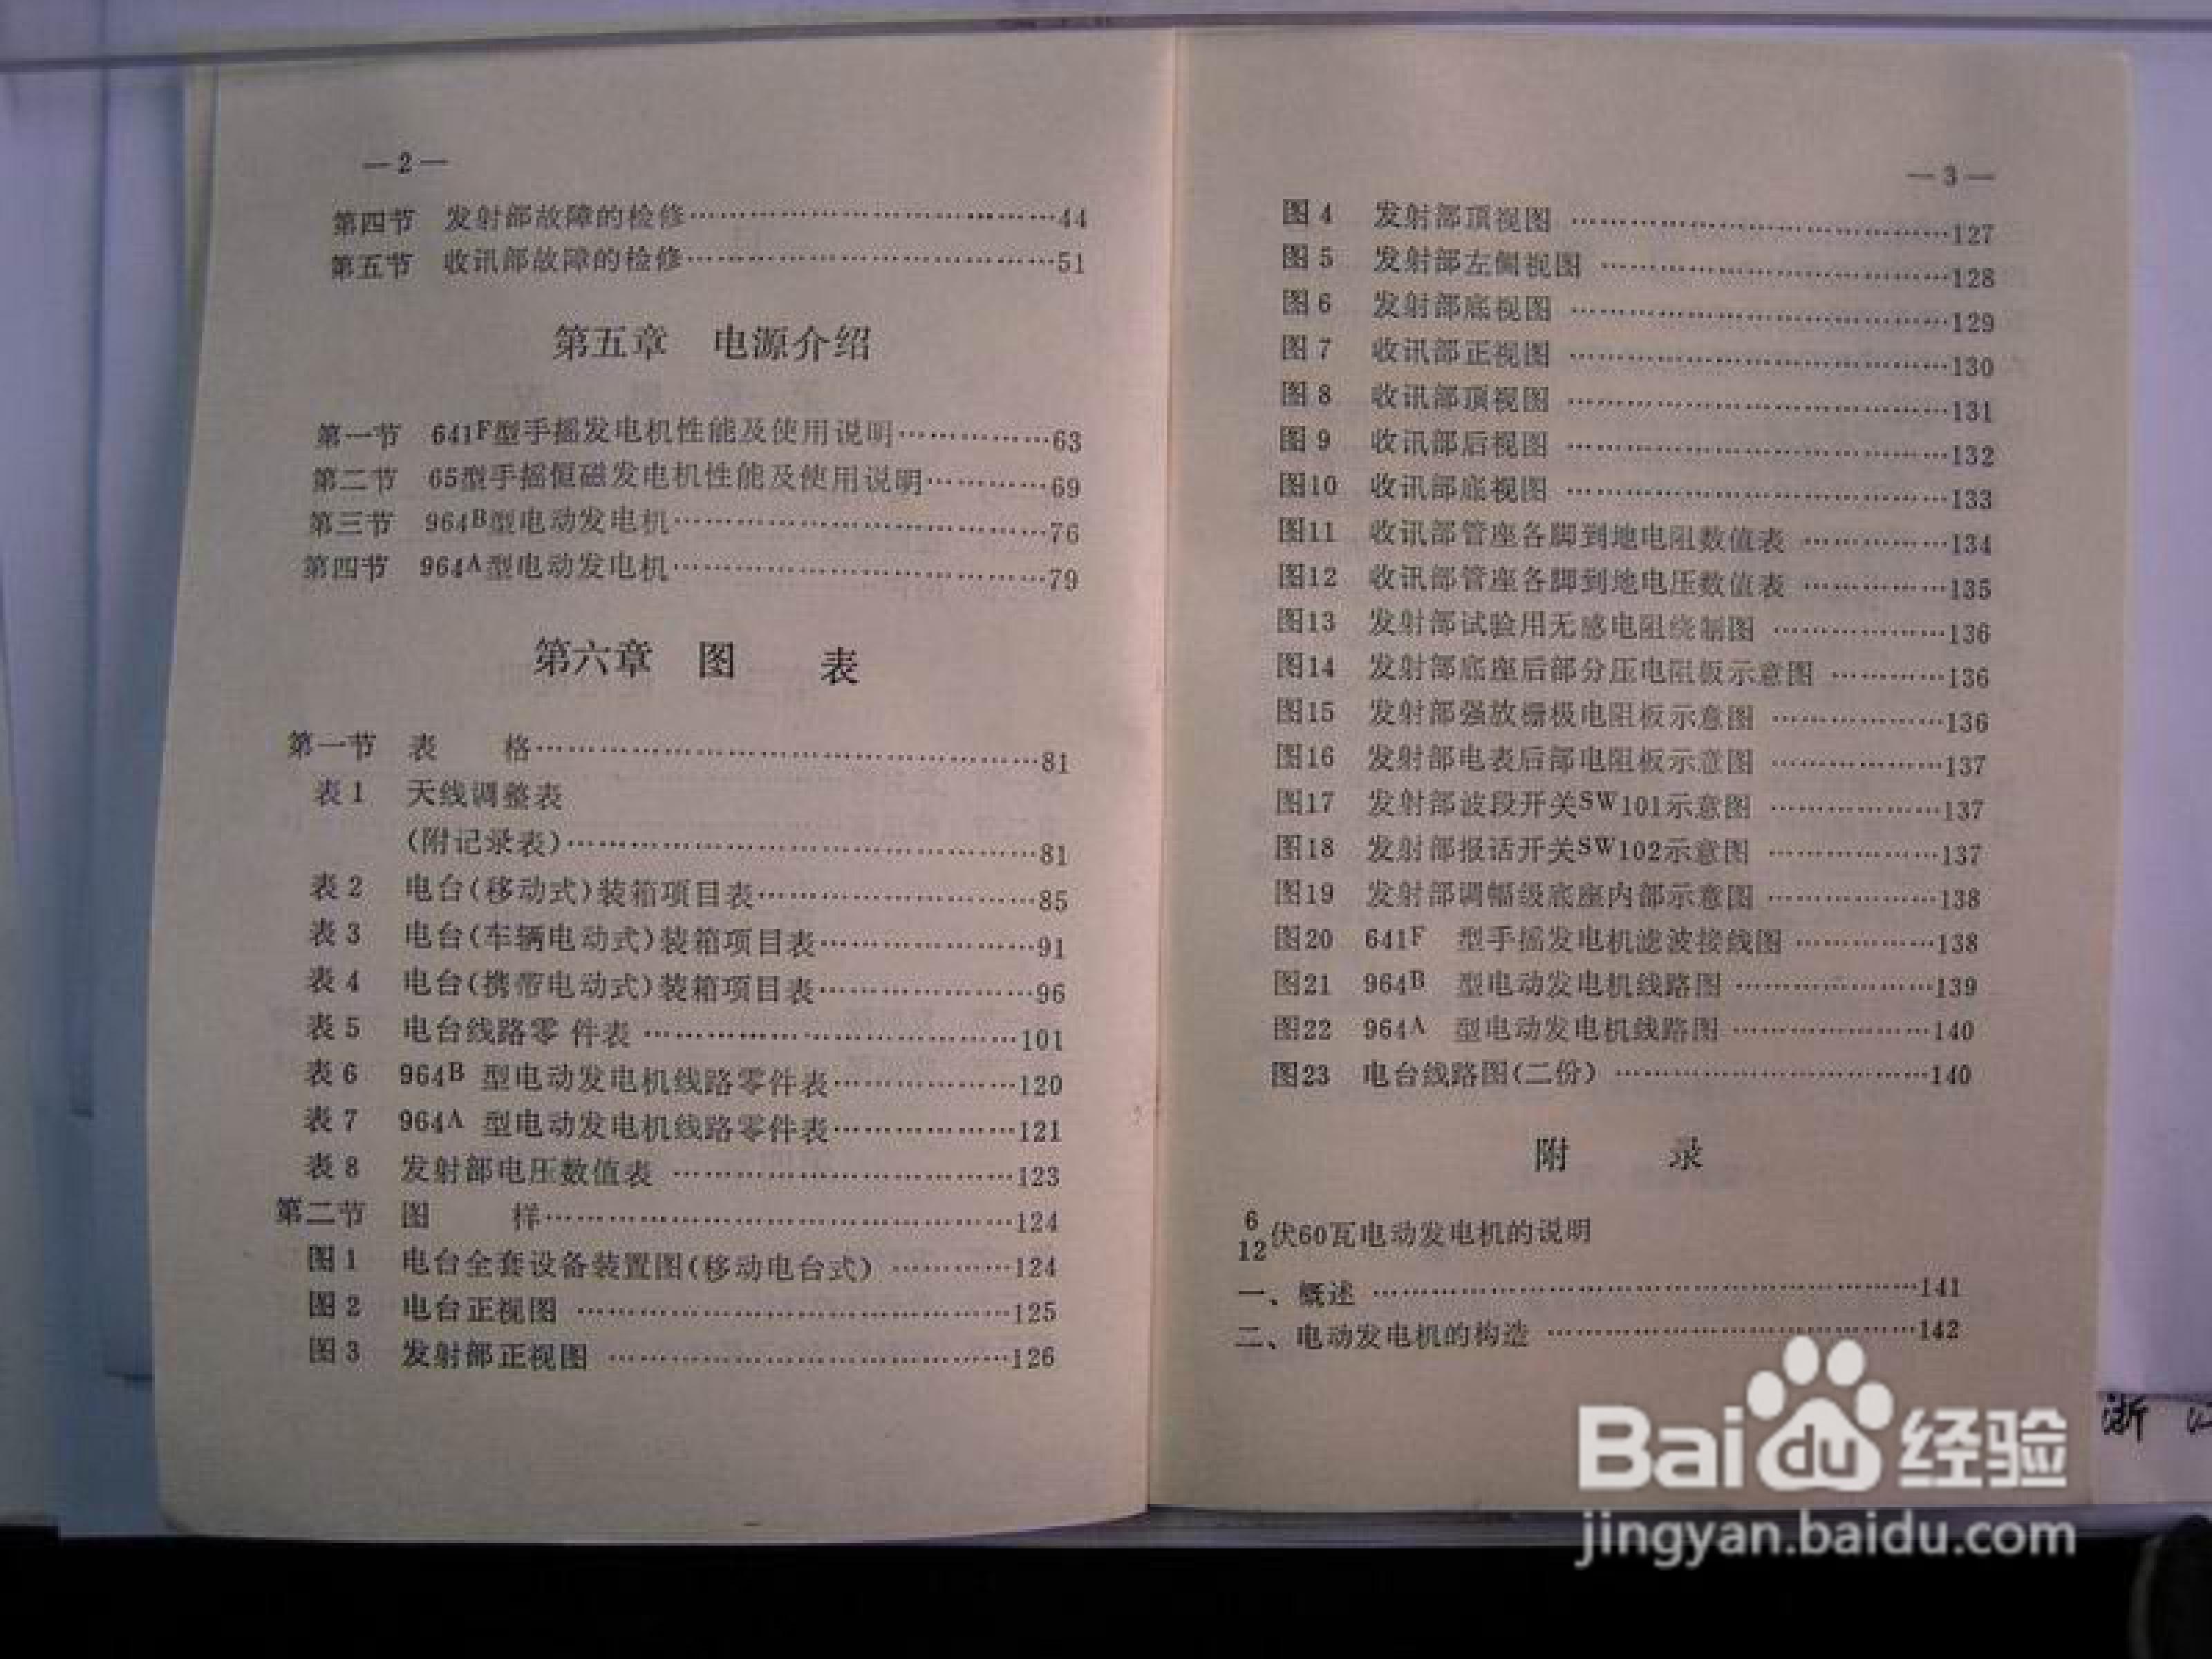 —2—
第四节 发射部故障的检修……………………………44
第五节 收讯部故障的检修……………………………51
第五章 电源介绍
第一节 641F型手摇发电机性能及使用说明……………63
第二节 65型手摇恒磁发电机性能及使用说明…………69
第三节 964B型电动发电机……………………………76
第四节 964A型电动发电机……………………………79
第六章 图 表
第一节 表 格……………………………………81
表1 天线调整表
(附记录表)……………………………………81
表2 电台(移动式)装箱项目表………………………85
表3 电台(车辆电动式)装箱项目表…………………91
表4 电台(携带电动式)装箱项目表…………………96
表5 电台线路零 件表……………………………101
表6 964B 型电动发电机线路零件表………………120
表7 964A 型电动发电机线路零件表………………121
表8 发射部电压数值表……………………………123
第二节 图 样……………………………………124
图1 电台全套设备装置图(移动电台式)…………124
图2 电台正视图……………………………………125
图3 发射部正视图…………………………………126
—3—
图4 发射部顶视图………………………………127
图5 发射部左侧视图……………………………128
图6 发射部底视图………………………………129
图7 收讯部正视图………………………………130
图8 收讯部顶视图………………………………131
图9 收讯部后视图………………………………132
图10 收讯部底视图………………………………133
图11 收讯部管座各脚到地电阻数值表……………134
图12 收讯部管座各脚到地电压数值表……………135
图13 发射部试验用无感电阻绕制图………………136
图14 发射部底座后部分压电阻板示意图…………136
图15 发射部强放栅极电阻板示意图………………136
图16 发射部电表后部电阻板示意图………………137
图17 发射部波段开关SW101示意图………………137
图18 发射部报话开关SW102示意图………………137
图19 发射部调幅级底座内部示意图………………138
图20 641F 型手摇发电机滤波接线图……………138
图21 964B 型电动发电机线路图…………………139
图22 964A 型电动发电机线路图…………………140
图23 电台线路图(二份)…………………………140
附 录
6/12伏60瓦电动发电机的说明
一、概述……………………………………………141
二、电动发电机的构造………………………………142
浙
Baidu经验
jingyan.baidu.com